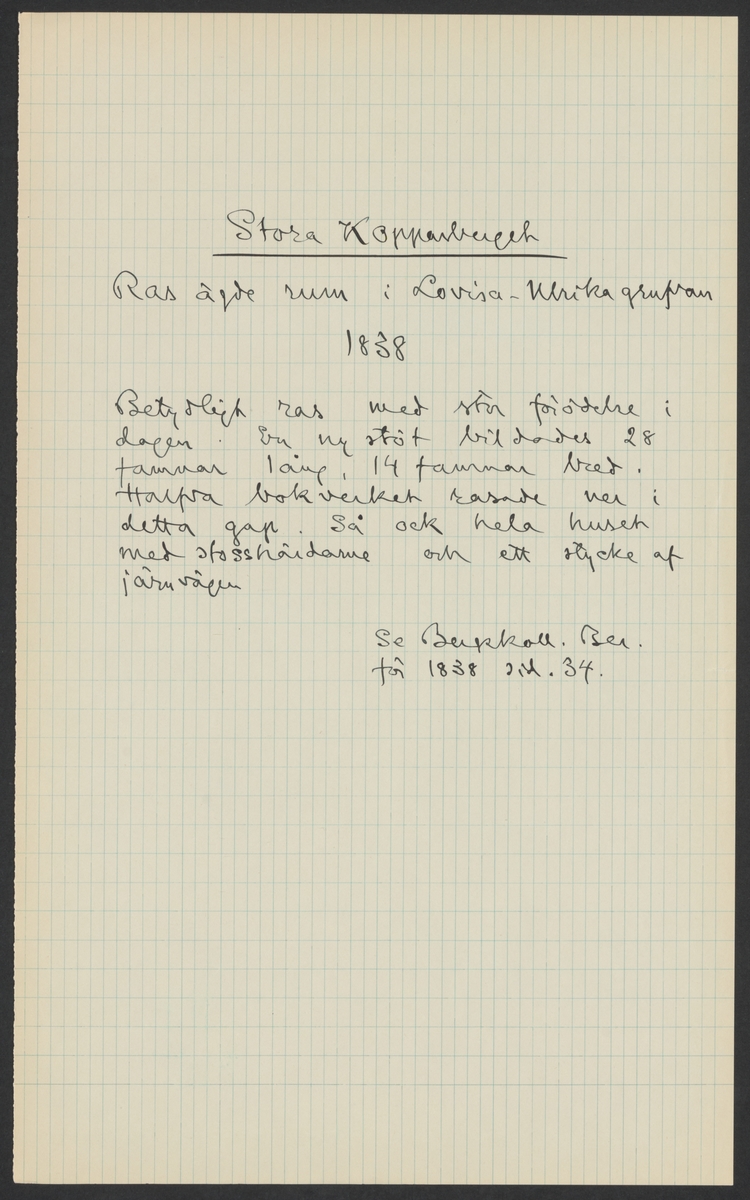 Stora Kopparberget
Ras ägde rum i Lovisa-Ulrika grufvan
1838
Betydligt ras med stor förödelse i
dagen. En ny stöt bildades 28
famnar lång, 14 famnar bred.
Halfva bokverket rasade ner i
detta gap. Så ock hela huset
med stosshärdarne och ett stycke af
järnvägen
Se Bergskoll. Ber.
för 1838 sid. 34.